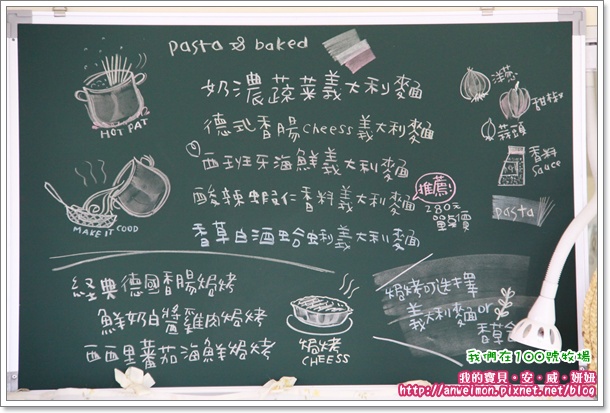 pasta & baked
奶濃蔬菜義大利麵
德式香腸cheess義大利麵
西班牙海鮮義大利麵
酸辣蝦仁香料義大利麵
推薦!
280元
單點價
香草白酒蛤蜊義大利麵
HOT PAT
MAKE IT COOD
洋蔥
甜椒
蒜頭
香料
Sauce
pasta
經典德國香腸焗烤
鮮奶白醬雞肉焗烤
西西里蕃茄海鮮焗烤
焗烤
CHEESS
焗烤可選擇
義大利麵or
香草
我們在100號牧場
我的寶貝‧安‧威‧妞妞
http://anweimon.pixnet.net/blog